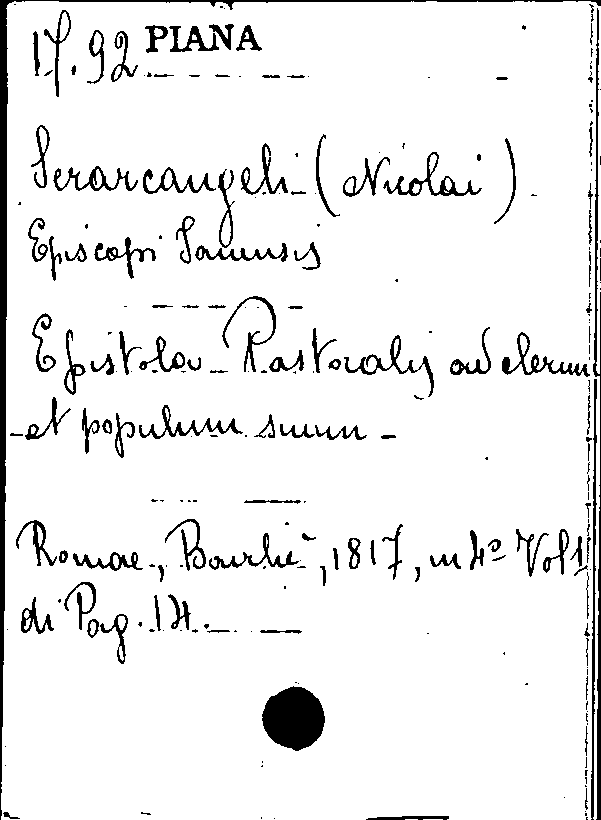 17.92 PIANA
Serarcangeli (Nicolai)
Episcopi
Epistola Pastoralis ad clerum
et populum suum
Romae, Bourliè, 1817, in 4º Vol 1
di Pag. 14.